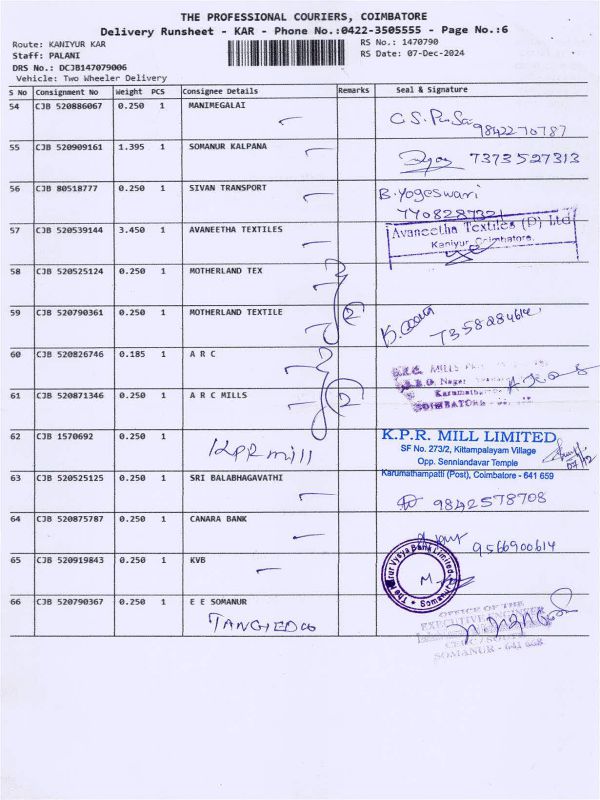 THE PROFESSIONAL COURIERS, COIMBATORE
Delivery Runsheet - KAR - Phone No.:0422-3505555 - Page No.:6
Route: KANIYUR KAR
RS No.: 1470790
Staff: PALANI
RS Date: 07-Dec-2024
DRS No.: DCJB147079006
Vehicle: Two Wheeler Delivery
S No Consignment No Weight PCS Consignee Details Remarks Seal & Signature
54 CJB 520886067 0.250 1 MANIMEGALAI
9842270787
55 CJB 520909161 1.395 1 SOMANUR KALPANA
7373527313
56 CJB 80518777 0.250 1 SIVAN TRANSPORT B. Yogeswari
7708287321
57 CJB 520539144 3.450 1 AVANEETHA TEXTILES Avaneetha Textiles (P) Ltd
Kaniyur, Coimbatore.
58 CJB 520525124 0.250 1 MOTHERLAND TEX
59 CJB 520790361 0.250 1 MOTHERLAND TEXTILE 2
60 CJB 520826746 0.185 1 A R C
MILLS
61 CJB 520871346 0.250 1 A R C MILLS 2
COIMBATORE
62 CJB 1570692 0.250 1 KPR mill
K.P.R. MILL LIMITED
SF No. 273/2, Kittampalayam Village
Opp. Senniandavar Temple
Karumathampatti (Post), Coimbatore - 641 659
07/12
63 CJB 520525125 0.250 1 SRI BALABHAGAVATHI
9842578708
64 CJB 520875787 0.250 1 CANARA BANK
9566900614
65 CJB 520919843 0.250 1 KVB
The Karur Vysya Bank Limited * Somanur *
66 CJB 520790367 0.250 1 E E SOMANUR
TANGEDCO
OFFICE OF THE
EXECUTIVE ENGINEER
SOMANUR - 641 668